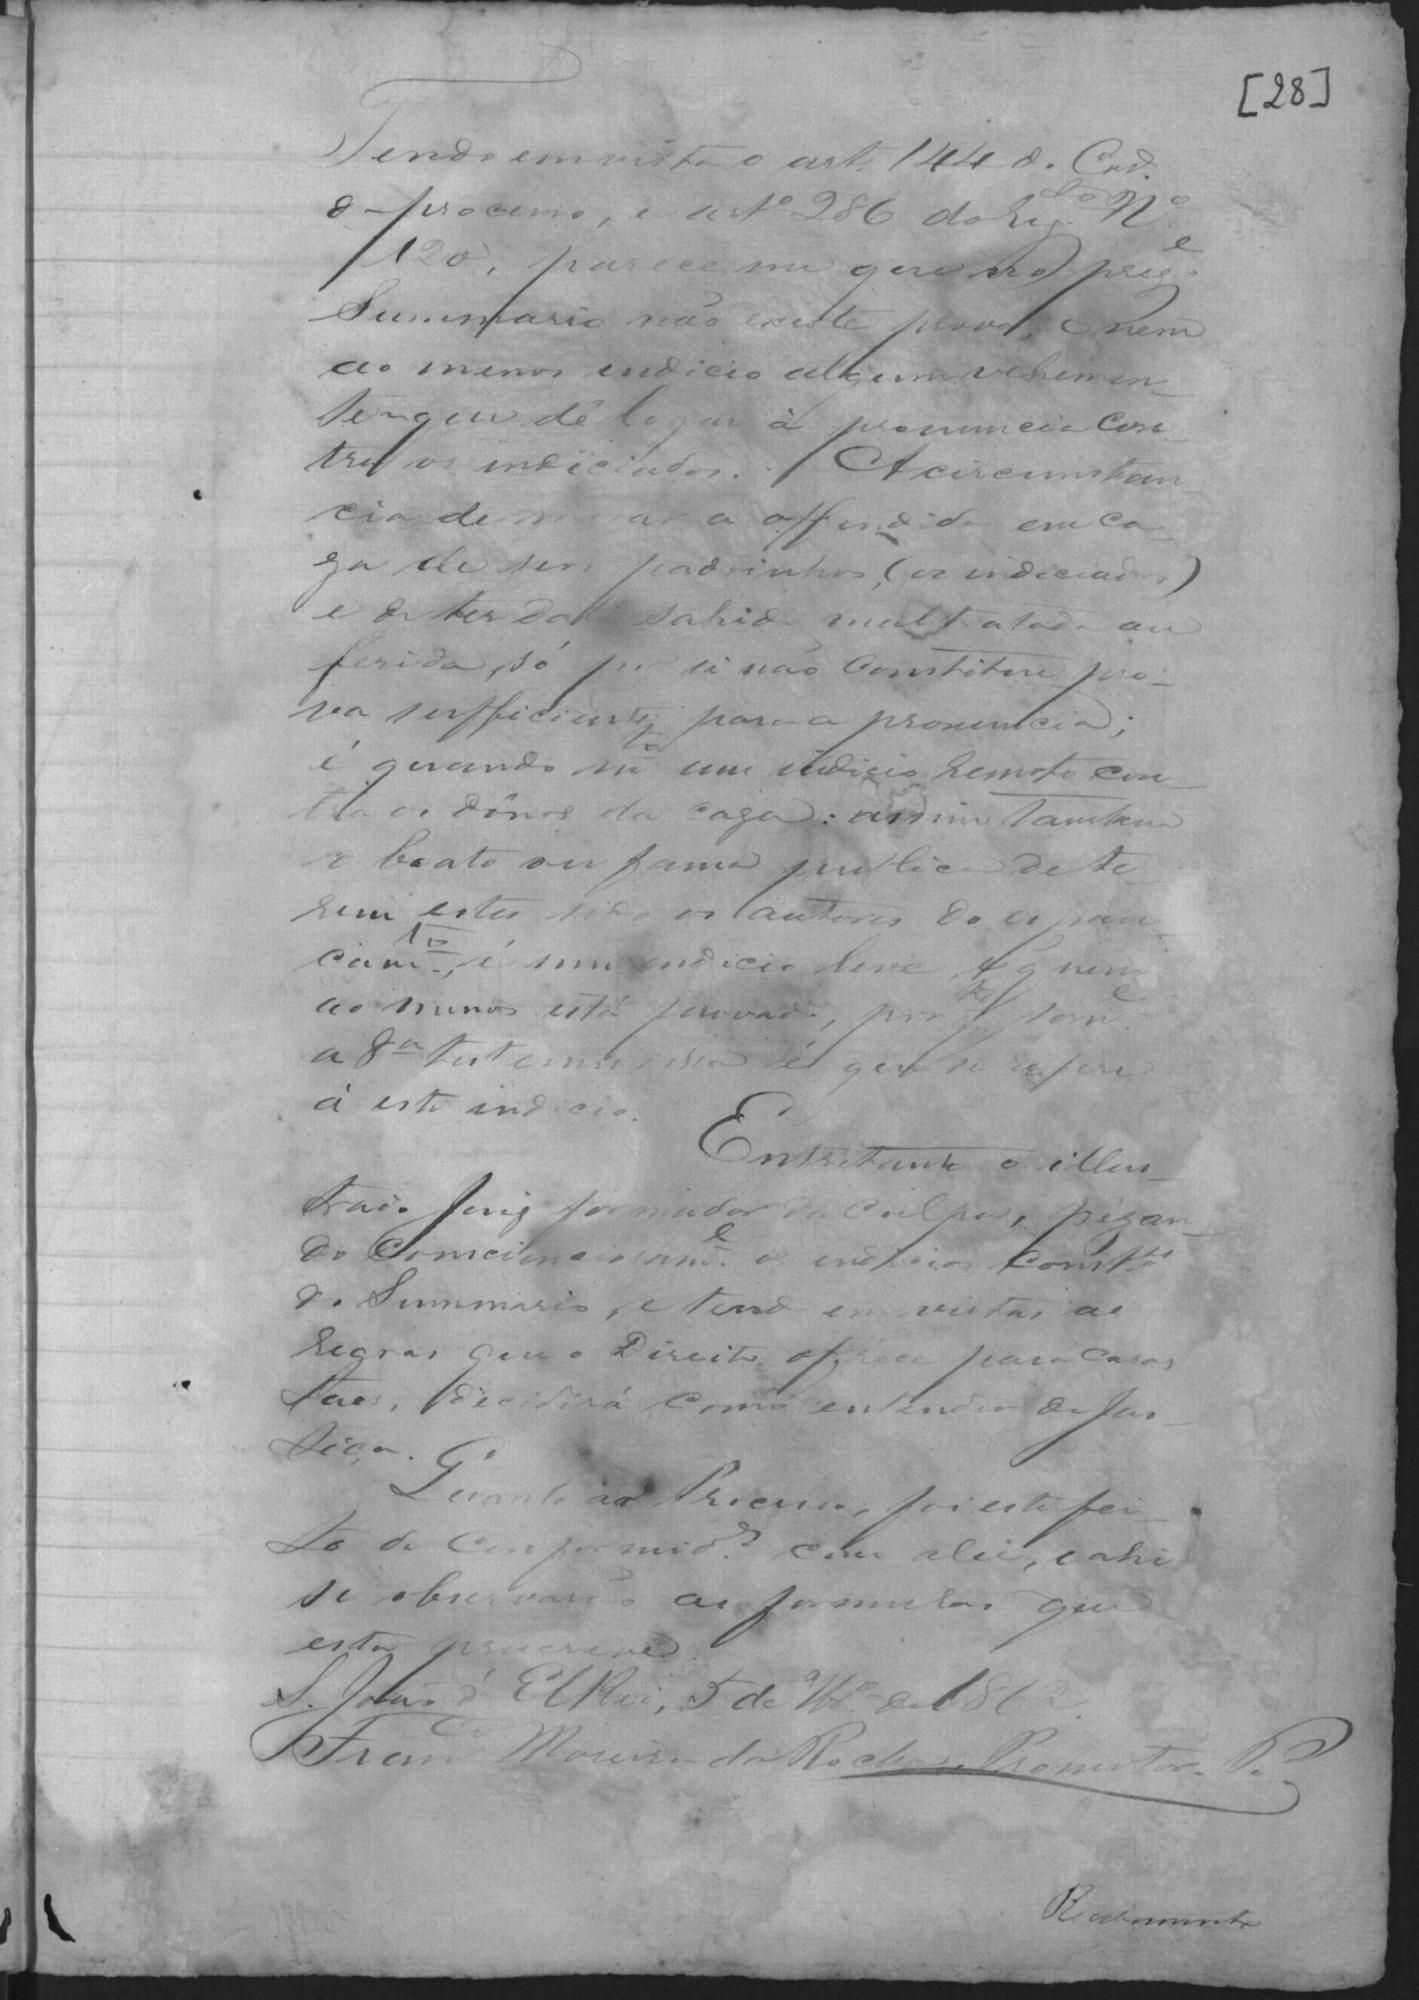 [28]
Tendo em vista o art. 144 do Cod.
do processo, e art.º 286 do Reg.to Nº
120, parece me que no prez.e
Summario não existe prova, e nem
ao menos indicio algum vehemen-
te que dê logar à pronuncia con-
tra os indiciados. A circumstan-
cia de morar a offendida em ca-
za de seus padrinhos, (os indiciados)
e de ter dali sahido maltratada ou
ferida, só por si não constitue pro-
va sufficiente para a pronuncia;
é quando m.to um indicio remoto con-
tra os dônos da caza: assim tambem
o boato ou fama publica de te-
rem estes sido os autores do espan-
cam.to, é um indicio leve, e q nem
ao menos está provado, por q som.e
a 8ª testemunha é que se refere
á este indicio.
Entretanto o illus-
trado Juiz formador da culpa, pezan-
do conscienciosam.e os indicios const.es
do Summario, e tendo em vistas as
regras que o Direito offrece para casos
taes, decidirá como entender de Jus-
tiça.
Quanto ao Processo, foi este fei-
to de conformid.e com a lei, e ahi
se observarão as formulas que
esta prescreve.
S. João d' El Rei, 5 de 9br.º de 1862.
Fran.co Moreira da Rocha, Promotor P.